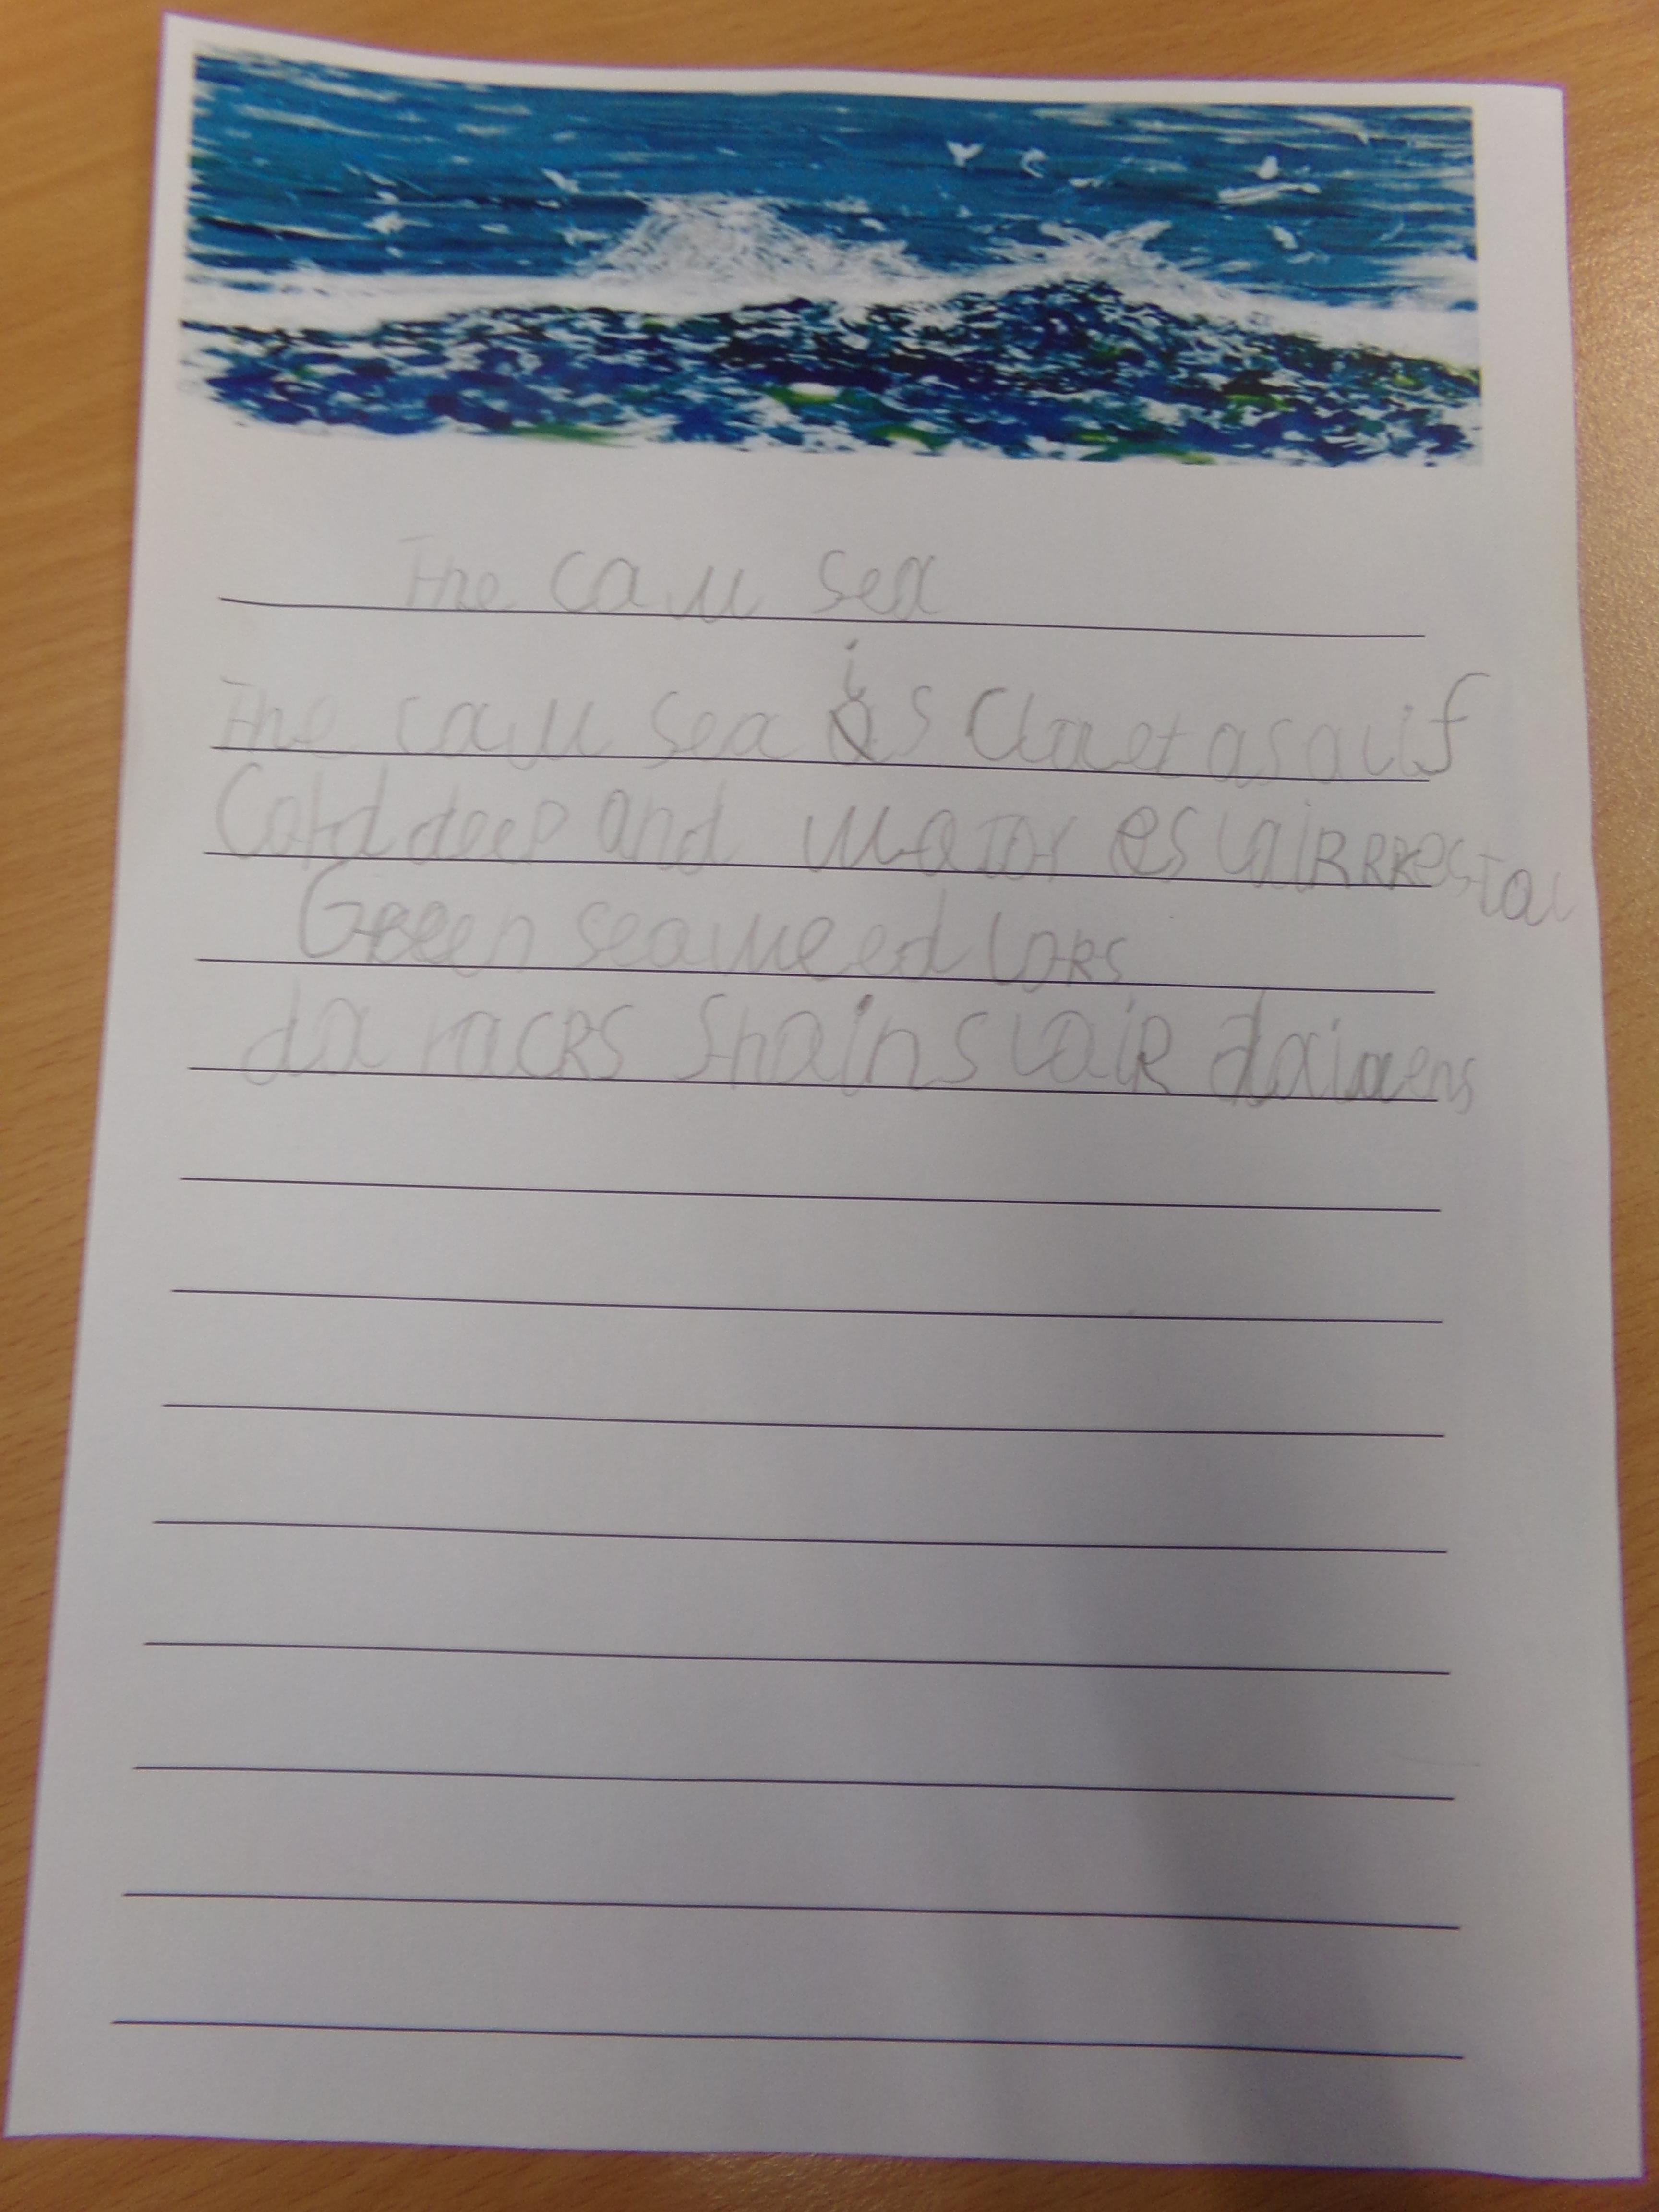 The caw sea
The caw sea is Clowet as a uif
Cold deep and wator es laiRRRestal
Green seaweed loRs
da racks Shains laiR daiaens